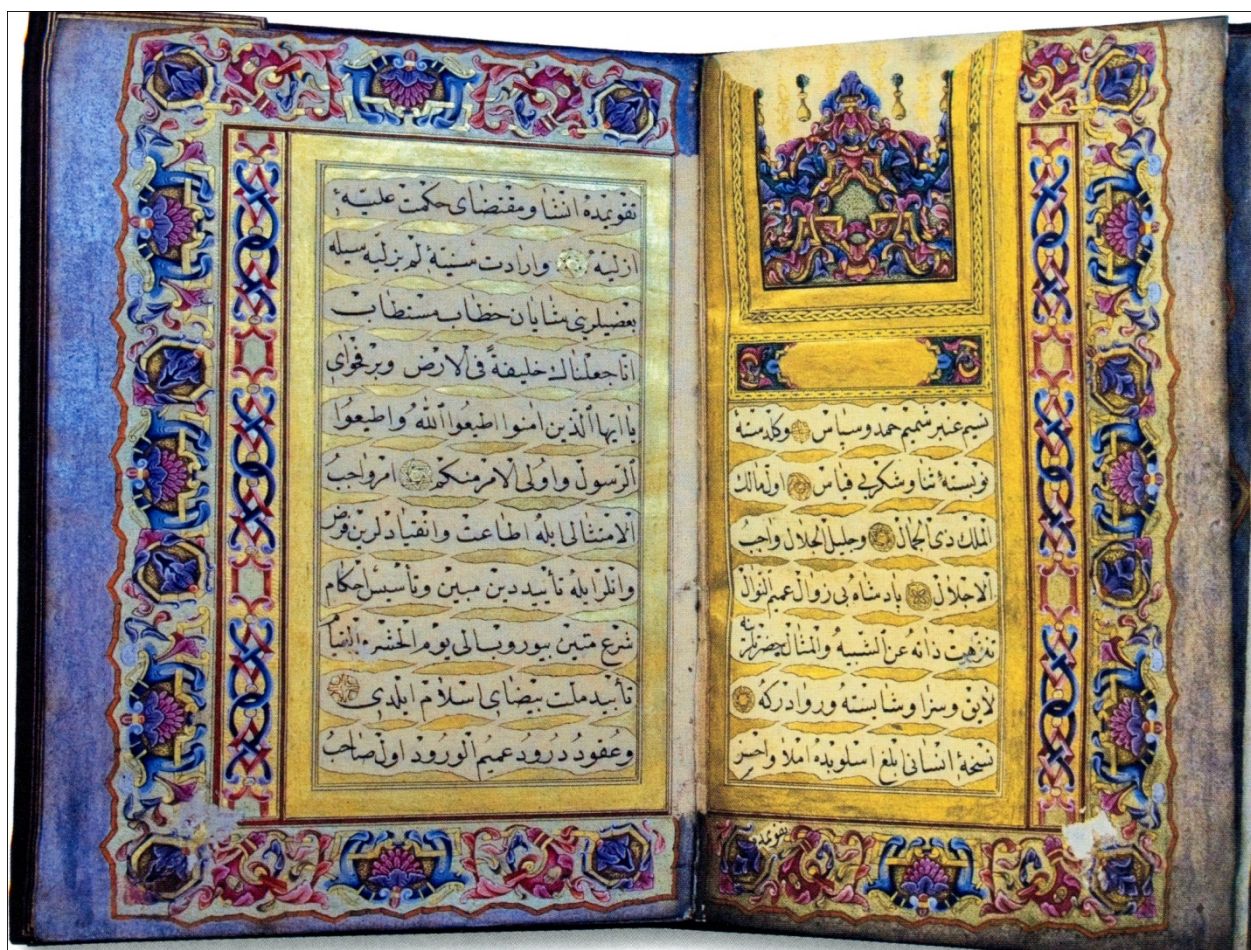 نسيم عنبر شميم حمد وسپاس وكلدسته
نوبستهٔ ثنا وشكر بى قياس اول مالك
الملك ذى الجمال وجليل الجلال واجب
الاجلال پادشاه بى زوال عميم النوال
تنزهت ذاته عن الشبيه والمثال حضرتلرينه
لايق وسزا وشايسته وروادركه
نسخهٔ انسانى ابلغ اسلوبده املا واحسن
تقويمده
تقويمده انشا ومقتضاى حكمت عليهٔ
ازليه وارادت سنيهٔ لم يزليه سيله
بعضيلرينى شايان خطاب مستطاب
انا جعلناك خليفةً فى الارض وبر فحواى
يا ايها الذين امنوا اطيعوا الله واطيعوا
الرسول واولى الامر منكم امر واجب
الامتثالى ايله اطاعت وانقيادلرين فرض
وانلر ايله تأييد دين مبين وتأسيس احكام
شرع متين بيوروب الى يوم الحشر
تأبيد ملت بيضاى اسلام ايلدى
وعقود درود عميم الورود اول صاحب